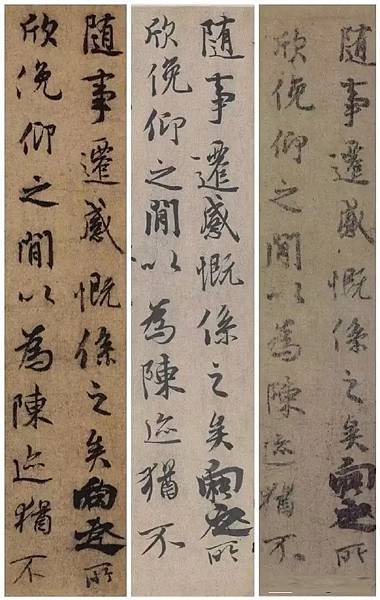 随事遷感慨係之矣向之所
欣俛仰之閒以為陳迹猶不
随事遷感慨係之矣向之所
欣俛仰之閒以為陳迹猶不
随事遷感慨係之矣向之所
欣俛仰之閒以為陳迹猶不